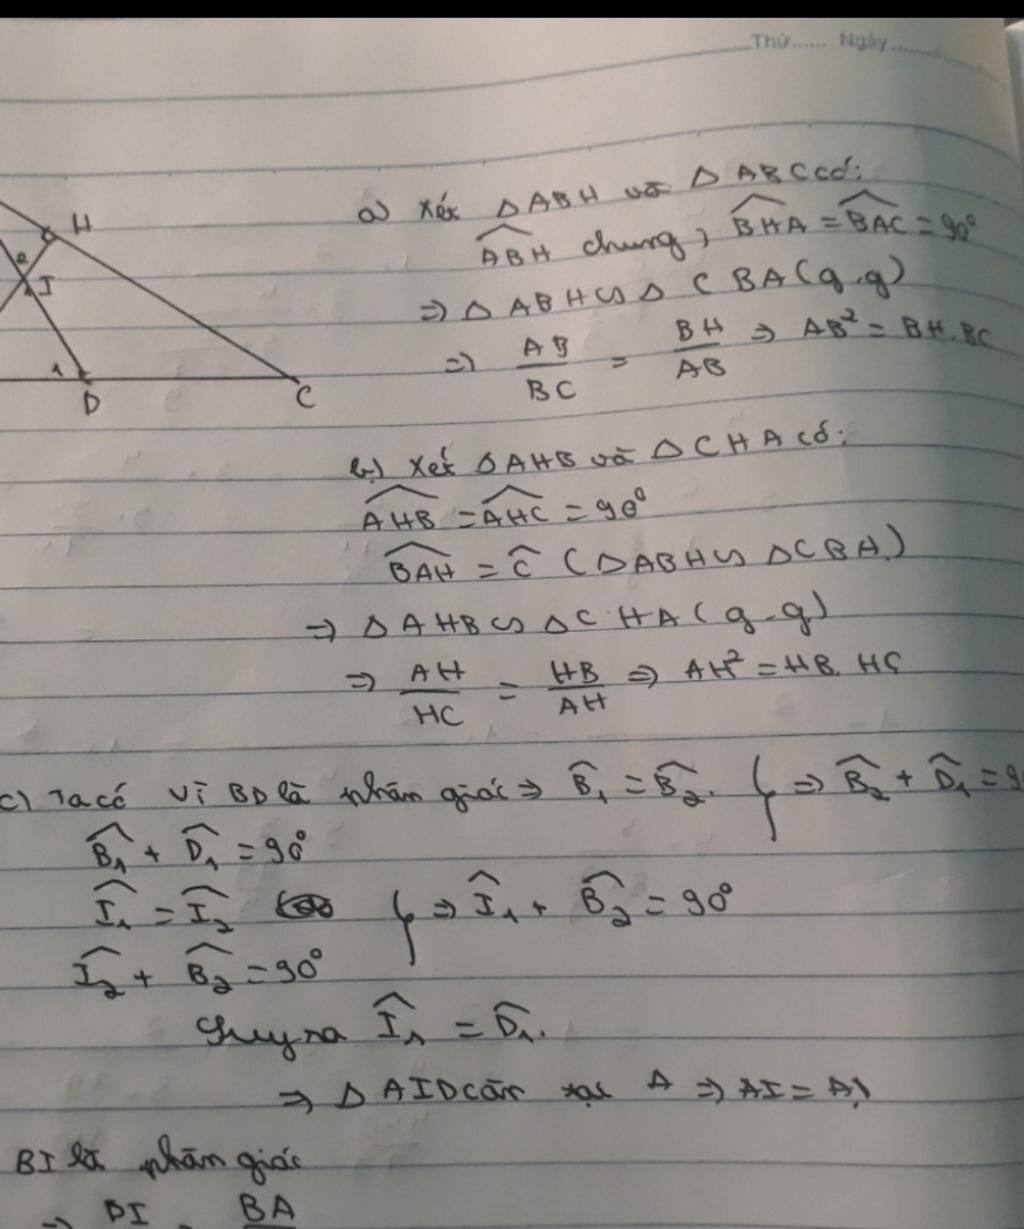 Thứ...... Ngày..........
H
2
I
1
D
C
a) Xét Δ ABH và Δ ABC có:
\widehat{ABH} chung, \widehat{BHA} = \widehat{BAC} = 90°
⇒ Δ ABH ∽ Δ CBA (g.g)
⇒ AB/BC = BH/AB ⇒ AB² = BH.BC
b) Xét Δ AHB và Δ CHA có:
\widehat{AHB} = \widehat{AHC} = 90°
\widehat{BAH} = \widehat{C} (Δ ABH ∽ Δ CBA)
⇒ Δ AHB ∽ Δ CHA (g-g)
⇒ AH/HC = HB/AH ⇒ AH² = HB.HC
c) Ta có Vì BD là phân giác ⇒ \widehat{B₁} = \widehat{B₂}. } ⇒ \widehat{B₂} + \widehat{D₁} = 9
\widehat{B₁} + \widehat{D₁} = 90°
\widehat{I₁} = \widehat{I₂} } ⇒ \widehat{I₁} + \widehat{B₂} = 90°
\widehat{I₂} + \widehat{B₂} = 90°
Suy ra \widehat{I₁} = \widehat{D₁}.
⇒ Δ AID cân tại A ⇒ AI = AD
BI là phân giác
⇒ BA